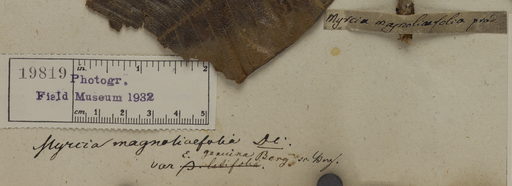 Myrcia magnoliaefolia
19819
in. 1 2
Photogr.
Field Museum 1932
cm. 1 2 3 4 5
Myrcia magnoliaefolia DC.
ε. genuina Berg
var β. latifolia.